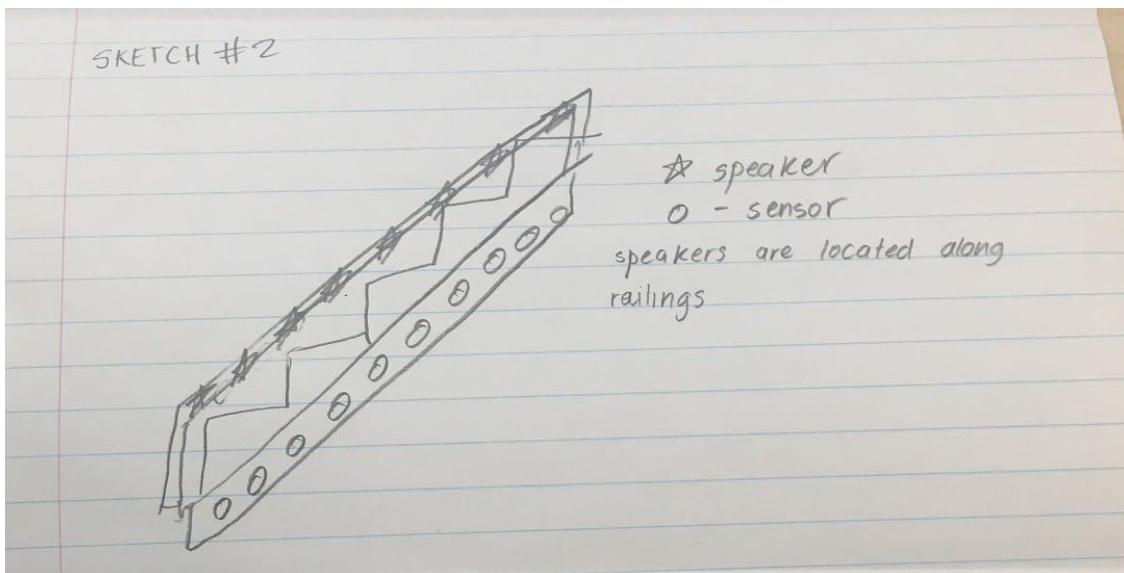 SKETCH #2
☆ speaker
O - sensor
speakers are located along
railings